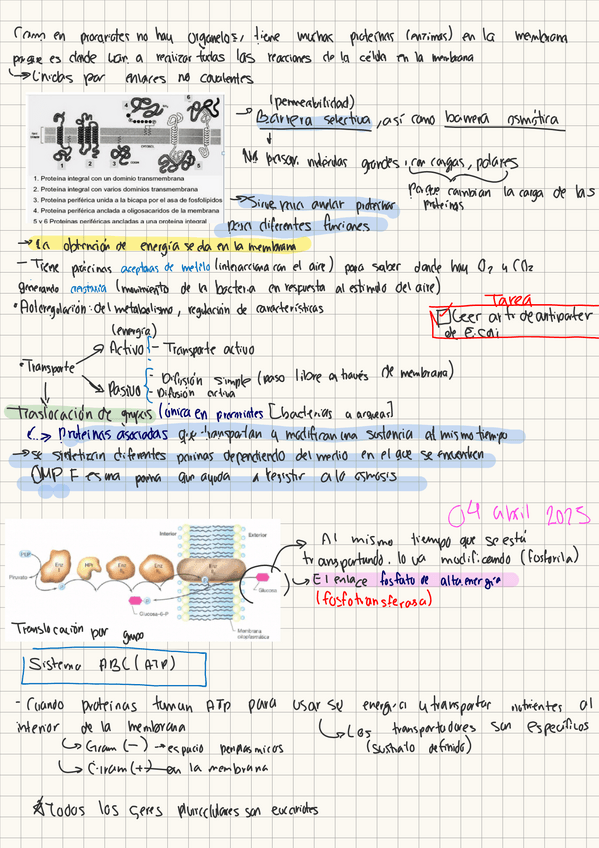 Como en procariotes no hay organelos, tiene muchas proteínas (enzimas) en la membrana
porque es donde van a realizar todas las reacciones de la célula en la membrana
→ Unidas por enlaces no covalentes
(permeabilidad)
→ Barrera selectiva, así como barrera osmótica
No pasan moléculas grandes, con cargas, polares
Porque cambian la carga de las
proteínas
1. Proteína integral con un dominio transmembrana
2. Proteína integral con varios dominios transmembrana
3. Proteína periférica unida a la bicapa por el asa de fosfolípidos
4. Proteína periférica anclada a oligosacaridos de la membrana
5 y 6 Proteínas periféricas ancladas a una proteína integral
→ Sirve para anclar proteínas
para diferentes funciones
→ La obtención de energía se da en la membrana
- Tiene proteínas aceptoras de metilo (interacciona con el aire) para saber donde hay O2 y CO2
generando (movimiento de la bacteria en respuesta al estímulo del aire)
• Autorregulación del metabolismo, regulación de características
Tarea
Leer art de antiporter
de E.coli
(energía)
Activo - Transporte activo
• Transporte
Pasivo - Difusión simple (paso libre a través de membrana)
- Difusión activa
Traslocación de grupos (única en procariotes [bacterias a arqueas]
Proteínas asociadas que transportan y modifican una sustancia al mismo tiempo
→ se sintetizan diferentes porinas dependiendo del medio en el que se encuentren
OMP F es una porina que ayuda a resistir a la osmosis
04 abril 2025
Interior
Exterior
PEP
Enz I
HPr
Enz
Enz
Enz
Piruvato
Glucosa
Glucosa-6-P
Membrana citoplasmática
Al mismo tiempo que se está
transportando, lo va modificando (fosforila)
→ El enlace fosfato de alta energía
(fosfotransferasa)
Translocación por grupo
Sistema ABC (ATP)
- Cuando proteínas toman ATP para usar se energía y transportar nutrientes al
interior de la membrana
→ Los transportadores son específicos
(sustrato definido)
→ Gram (-) → espacio periplasmicos
→ Gram (+) → en la membrana
Todos los seres pluricelulares son eucariotes